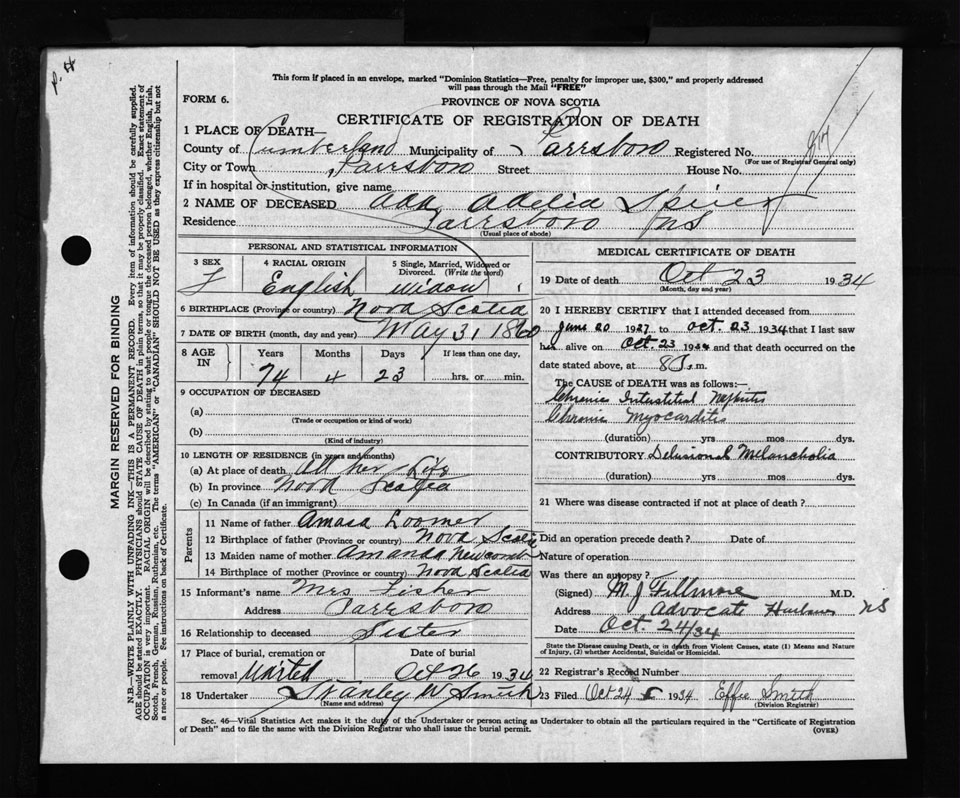 This form if placed in an envelope, marked "Dominion Statistics—Free, penalty for improper use, $300," and properly addressed
will pass through the Mail "FREE"
FORM 6.
PROVINCE OF NOVA SCOTIA
CERTIFICATE OF REGISTRATION OF DEATH
1 PLACE OF DEATH—
County of Cumberland Municipality of Parrsboro Registered No.
(For use of Registrar General only)
City or Town Parrsboro Street House No.
If in hospital or institution, give name
2 NAME OF DECEASED Ada Adelia Spicer
Residence Parrsboro NS
(Usual place of abode)
PERSONAL AND STATISTICAL INFORMATION
3 SEX 4 RACIAL ORIGIN 5 Single, Married, Widowed or
Divorced. (Write the word)
F English widow
6 BIRTHPLACE (Province or country) Nova Scotia
7 DATE OF BIRTH (month, day and year) May 31 1860
8 AGE IN Years Months Days If less than one day,
74 4 23 hrs. or min.
9 OCCUPATION OF DECEASED
(a)
(Trade or occupation or kind of work)
(b)
(Kind of industry)
10 LENGTH OF RESIDENCE (in years and months)
(a) At place of death All her Life
(b) In province Nova Scotia
(c) In Canada (if an immigrant)
Parents
11 Name of father Amasa Loomer
12 Birthplace of father (Province or country) Nova Scotia
13 Maiden name of mother Amanda Newcomb
14 Birthplace of mother (Province or country) Nova Scotia
15 Informant's name Mrs Fisher
Address Parrsboro
16 Relationship to deceased Sister
17 Place of burial, cremation or removal Date of burial
Oct 26 1934
18 Undertaker Stanley W Smith
(Name and address)
MEDICAL CERTIFICATE OF DEATH
19 Date of death Oct 23 1934
(Month, day and year)
20 I HEREBY CERTIFY that I attended deceased from
June 20 1927 to Oct. 23 1934 that I last saw
her alive on Oct. 23 1934 and that death occurred on the
date stated above, at m.
The CAUSE OF DEATH was as follows:—
Chronic Interstitial Nephritis
Chronic Myocarditis
(duration) yrs mos dys.
CONTRIBUTORY Delusional Melancholia
(duration) yrs mos dys.
21 Where was disease contracted if not at place of death?
Did an operation precede death? Date of
Nature of operation
Was there an autopsy?
(Signed) M. J Fillmore M.D.
Address Advocate Harbour NS
Date Oct. 24/34
State the Disease causing Death, or in death from Violent Causes, state (1) Means and Nature
of Injury, (2) whether Accidental, Suicidal or Homicidal.
22 Registrar's Record Number
23 Filed Oct 24 1934 Effie Smith
(Division Registrar)
Sec. 46—Vital Statistics Act makes it the duty of the Undertaker or person acting as Undertaker to obtain all the particulars required in the "Certificate of Registration
of Death" and to file the same with the Division Registrar who shall issue the burial permit.
(OVER)
MARGIN RESERVED FOR BINDING
N.B.—WRITE PLAINLY WITH UNFADING INK—THIS IS A PERMANENT RECORD. Every item of information should be carefully supplied.
AGE should be stated EXACTLY. PHYSICIANS should STATE CAUSE OF DEATH in plain terms, so that it may be properly classified. Exact statement of
OCCUPATION is very important. RACIAL ORIGIN will be described by stating to what people or tongue the deceased person belonged, whether English, Irish,
Scotch, French, German, Russian, Ruthenian, etc. The terms "AMERICAN" or "CANADIAN" SHOULD NOT BE USED as they express citizenship but not
a race or people. See instructions on back of Certificate.